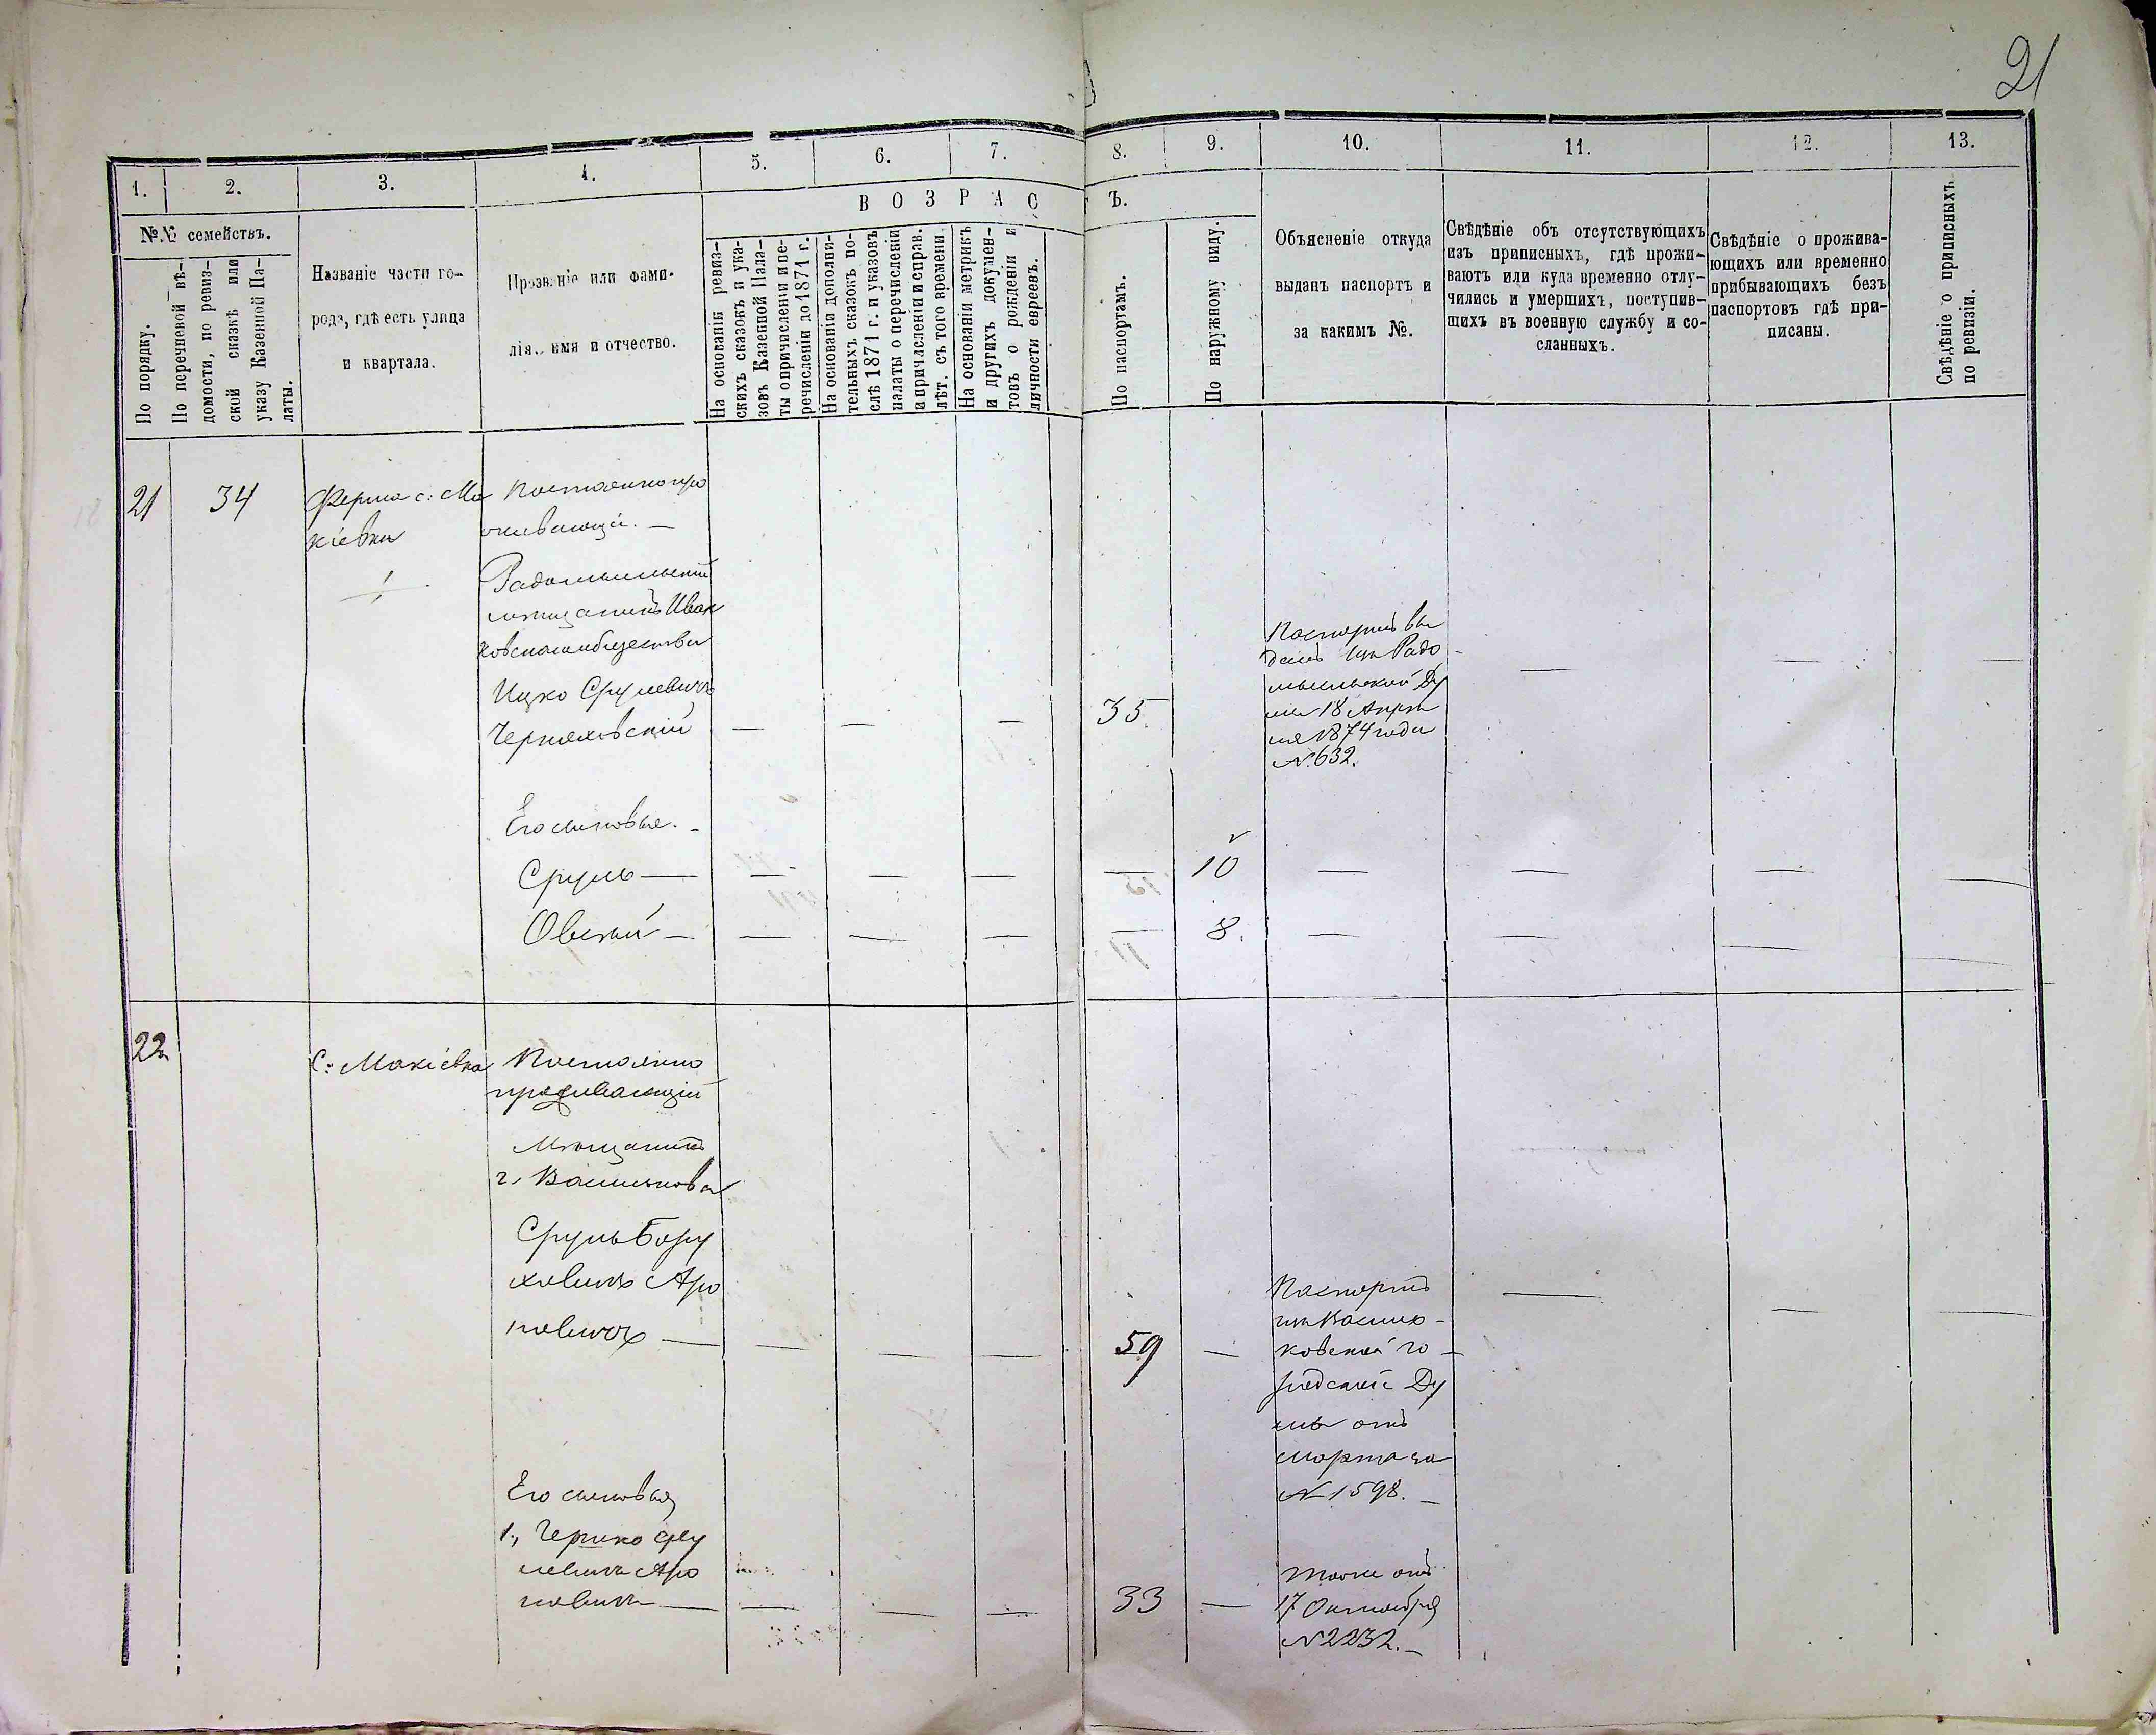 21
1.
2.
3.
4.
5.
6.
7.
8.
9.
10.
11.
12.
13.
№№ семействъ.
По порядку.
По перечневой вѣ-
домости, по ревиз-
ской сказкѣ или
указу Казенной Па-
латы.
Названіе части го-
рода, гдѣ есть улица
и квартала.
Прозваніе или фами-
лія, имя и отчество.
ВОЗРАС
Ъ.
На основаніи ревиз-
скихъ сказокъ и ука-
зовъ Казенной Пала-
ты о причисленіи и пе-
речисленіи до 1871 г.
На основаніи дополни-
тельныхъ сказокъ по-
слѣ 1871 г. и указовъ
палаты о перечисленіи
и причисленіи и справ.
лѣт. съ того времени.
На основаніи метрикъ
и другихъ докумен-
товъ о рожденіи и
личности евреевъ.
По паспортамъ.
По наружному виду.
Объясненіе откуда
выданъ паспортъ и
за какимъ №.
Свѣдѣніе объ отсутствующихъ
изъ приписныхъ, гдѣ прожи-
ваютъ или куда временно отлу-
чились и умершихъ, поступив-
шихъ въ военную службу и со-
сланныхъ.
Свѣдѣніе о прожива-
ющихъ или временно
прибывающихъ безъ
паспортовъ гдѣ при-
писаны.
Свѣдѣніе о приписныхъ
по ревизіи.
21
34
Ферма с: Ма
кіевки
Постоянно про
живающій. —
Радомысльскій
мѣщанинъ Иван
ковскаго общества
Ицко Срулевичъ
Черняховскій — — —
35
Паспортъ вы
данъ изъ Радо
мысльской Ду
мы 18 Апрѣ
ля 1874 года
№ 632.
— — —
Его сыновья. —
Сруль — — — — — 10 — — — —
Овсѣй — — — — — 8. — — — —
22
С: Макіевка
Постоянно
проживающій
Мѣщанинъ
г. Василькова
Сруль Бору
ховичъ Аро
новичъ — — — —
59 —
Паспортъ
изъ Василь-
ковской го-
родской Ду
мы отъ
марта за
№ 1598. —
— — —
Его сыновья
1., Гершко Сру
левичъ Аро
новичъ — — — —
33 —
Тоже отъ
17 Октября
№ 2232. —